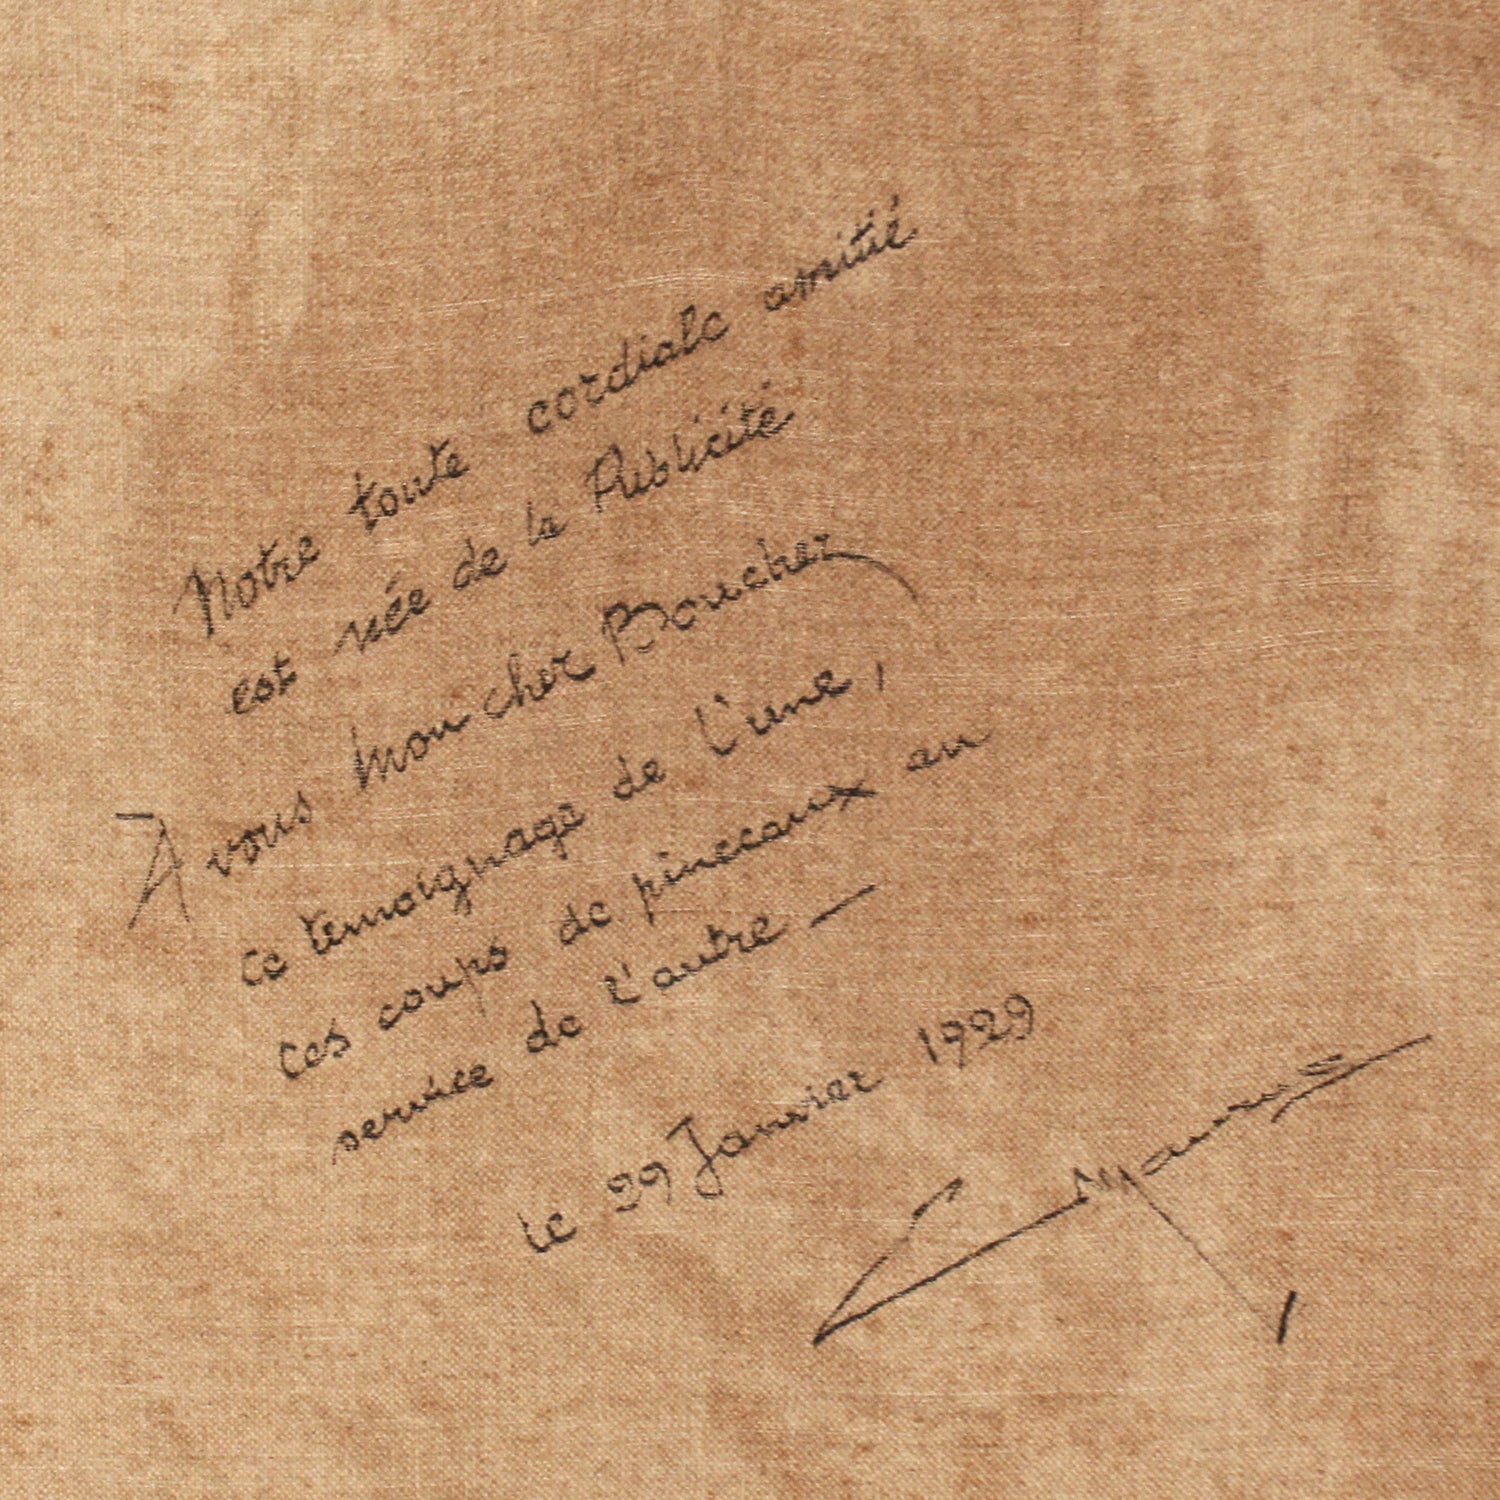 Notre toute cordiale amitié
est née de la Publicité
A vous mon cher Boucher
ce temoignage de l'une,
ces coups de pinceaux au
service de l'autre —
le 29 Janvier 1929
Maurus